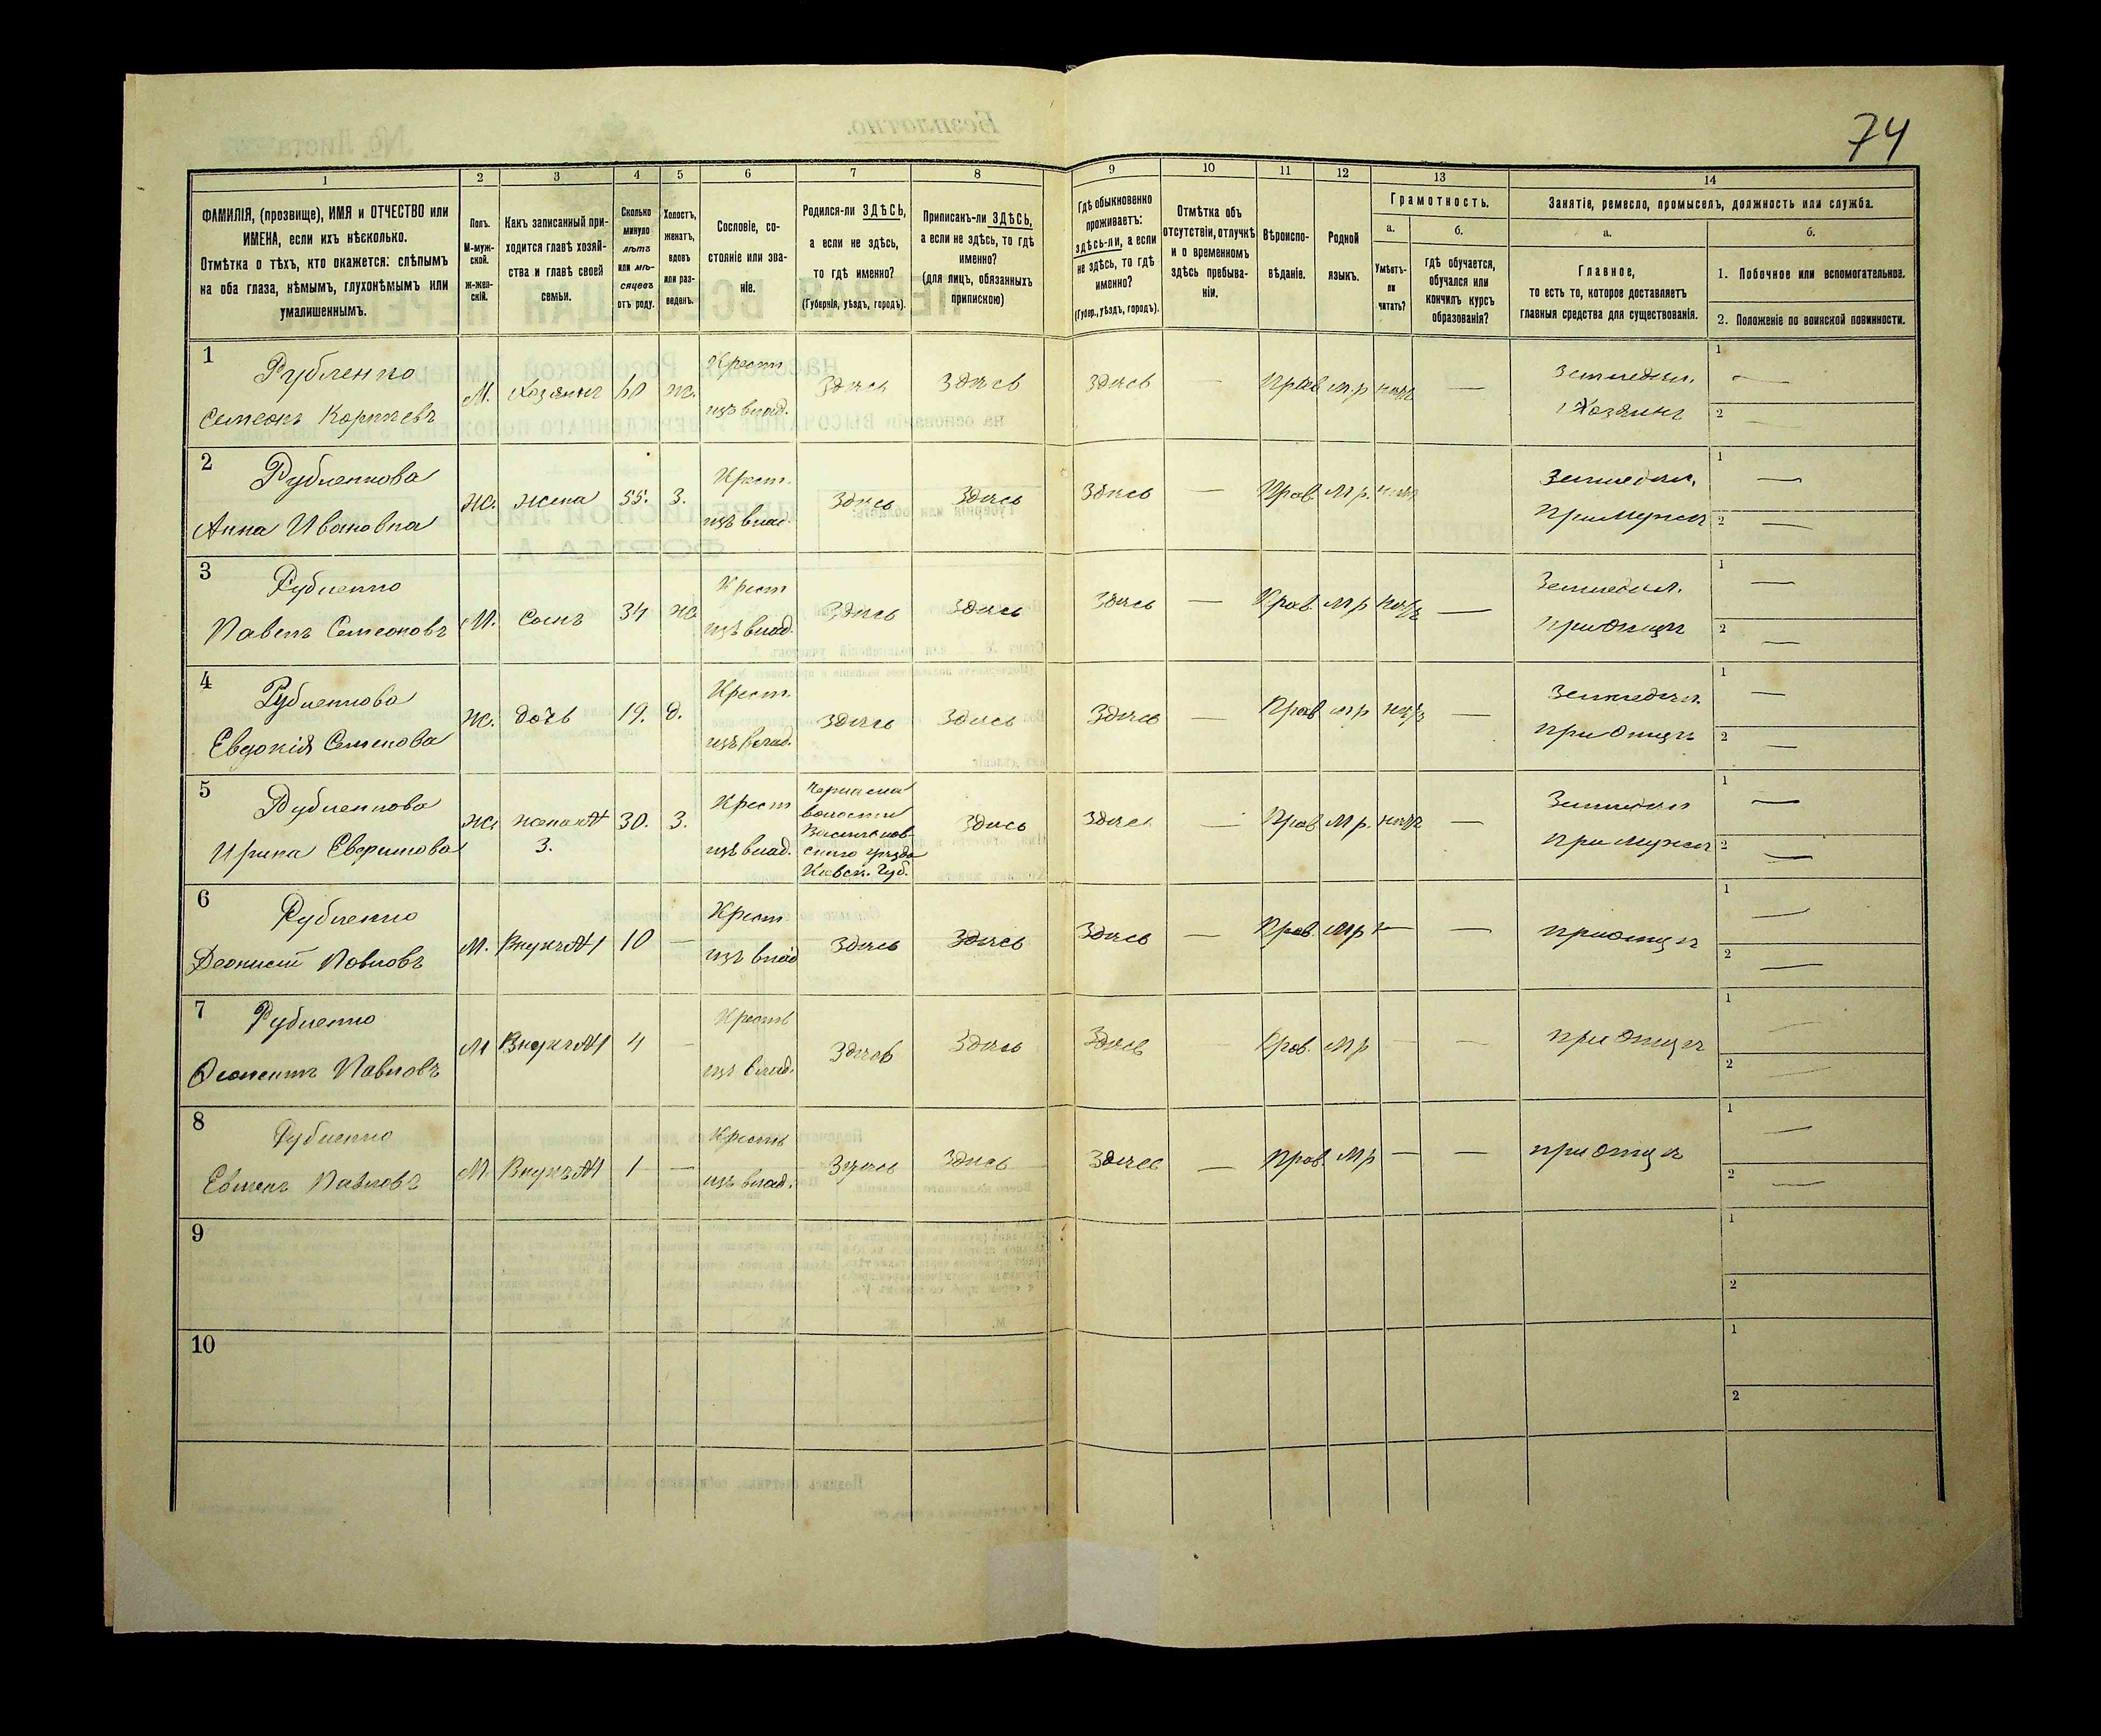 74
1
2
3
4
5
6
7
8
9
10
11
12
13
14
ФАМИЛІЯ, (прозвище), ИМЯ и ОТЧЕСТВО или
ИМЕНА, если ихъ нѣсколько.
Отмѣтка о тѣхъ, кто окажется: слѣпымъ
на оба глаза, нѣмымъ, глухонѣмымъ или
умалишеннымъ.
Полъ.
М-муж-
ской.
Ж-жен-
скій.
Какъ записанный при-
ходится главѣ хозяй-
ства и главѣ своей
семьи.
Сколько
минуло
лѣтъ
или мѣ-
сяцевъ
отъ роду.
Холостъ,
женатъ,
вдовъ
или раз-
веденъ.
Сословіе, со-
стояніе или зва-
ніе.
Родился-ли ЗДѢСЬ,
а если не здѣсь,
то гдѣ именно?
(Губернія, уѣздъ, городъ).
Приписанъ-ли ЗДѢСЬ,
а если не здѣсь, то гдѣ
именно?
(для лицъ, обязанныхъ
припискою)
Гдѣ обыкновенно
проживаетъ:
здѣсь-ли, а если
не здѣсь, то гдѣ
именно?
(Губер., уѣздъ, городъ).
Отмѣтка объ
отсутствіи, отлучкѣ
и о временномъ
здѣсь пребыва-
ніи.
Вѣроиспо-
вѣданіе.
Родной
языкъ.
Грамотность.
а.
Умѣетъ-
ли
читать?
б.
гдѣ обучается,
обучался или
кончилъ курсъ
образованія?
Занятіе, ремесло, промыселъ, должность или служба.
а.
Главное,
то есть то, которое доставляетъ
главныя средства для существованія.
б.
1. Побочное или вспомогательное.
2. Положеніе по воинской повинности.
1 Рубленко
Семеонъ Корнѣевъ
М. Хозяинъ 60 ж. Крест. изъ влад. Здѣсь Здѣсь Здѣсь — Прав. м.р нѣтъ — Земледѣл. Хозяинъ 1 — 2 —
2 Рубленкова
Анна Ивановна
Ж. жена 55. З. Крест. изъ влад. Здѣсь Здѣсь Здѣсь — Прав. м р. нѣтъ Земледѣл. При мужѣ 1 — 2 —
3 Рубленко
Павелъ Семеоновъ
М. Сынъ 34 ж Крест изъ влад. Здѣсь Здѣсь Здѣсь — Прав. м р нѣтъ — Земледѣл. при Отцѣ 1 — 2 —
4 Рубленкова
Евдокія Семенова
Ж. дочь 19. д. Крест. изъ влад. Здѣсь Здѣсь Здѣсь — Прав м р нѣтъ — Земледѣл. при Отцѣ 1 — 2 —
5 Рубленкова
Ирина Ефримова
Ж 30. З. Крест изъ влад.
волости
Васильков-
скаго уѣзда
Кіевск. Губ.
Здѣсь Здѣсь — Прав. м р. нѣтъ — Земледѣл при мужѣ 1 — 2 —
6 Рубленко
Деонисій Павловъ
М. Внукъ 10 — Крест изъ влад Здѣсь Здѣсь Здѣсь — Прав. м р — — при отцѣ 1 — 2 —
7 Рубленко
Павловъ
М Внукъ 4 — Крестъ изъ влад. Здѣсь Здѣсь Здѣсь — Прав. м р — — при Отцѣ 1 — 2 —
8 Рубленко
Павловъ
М. Внукъ 1 — Крестъ изъ влад. Здѣсь Здѣсь Здѣсь — Прав. м р — — при отцѣ 1 — 2 —
9
1
2
10
1
2